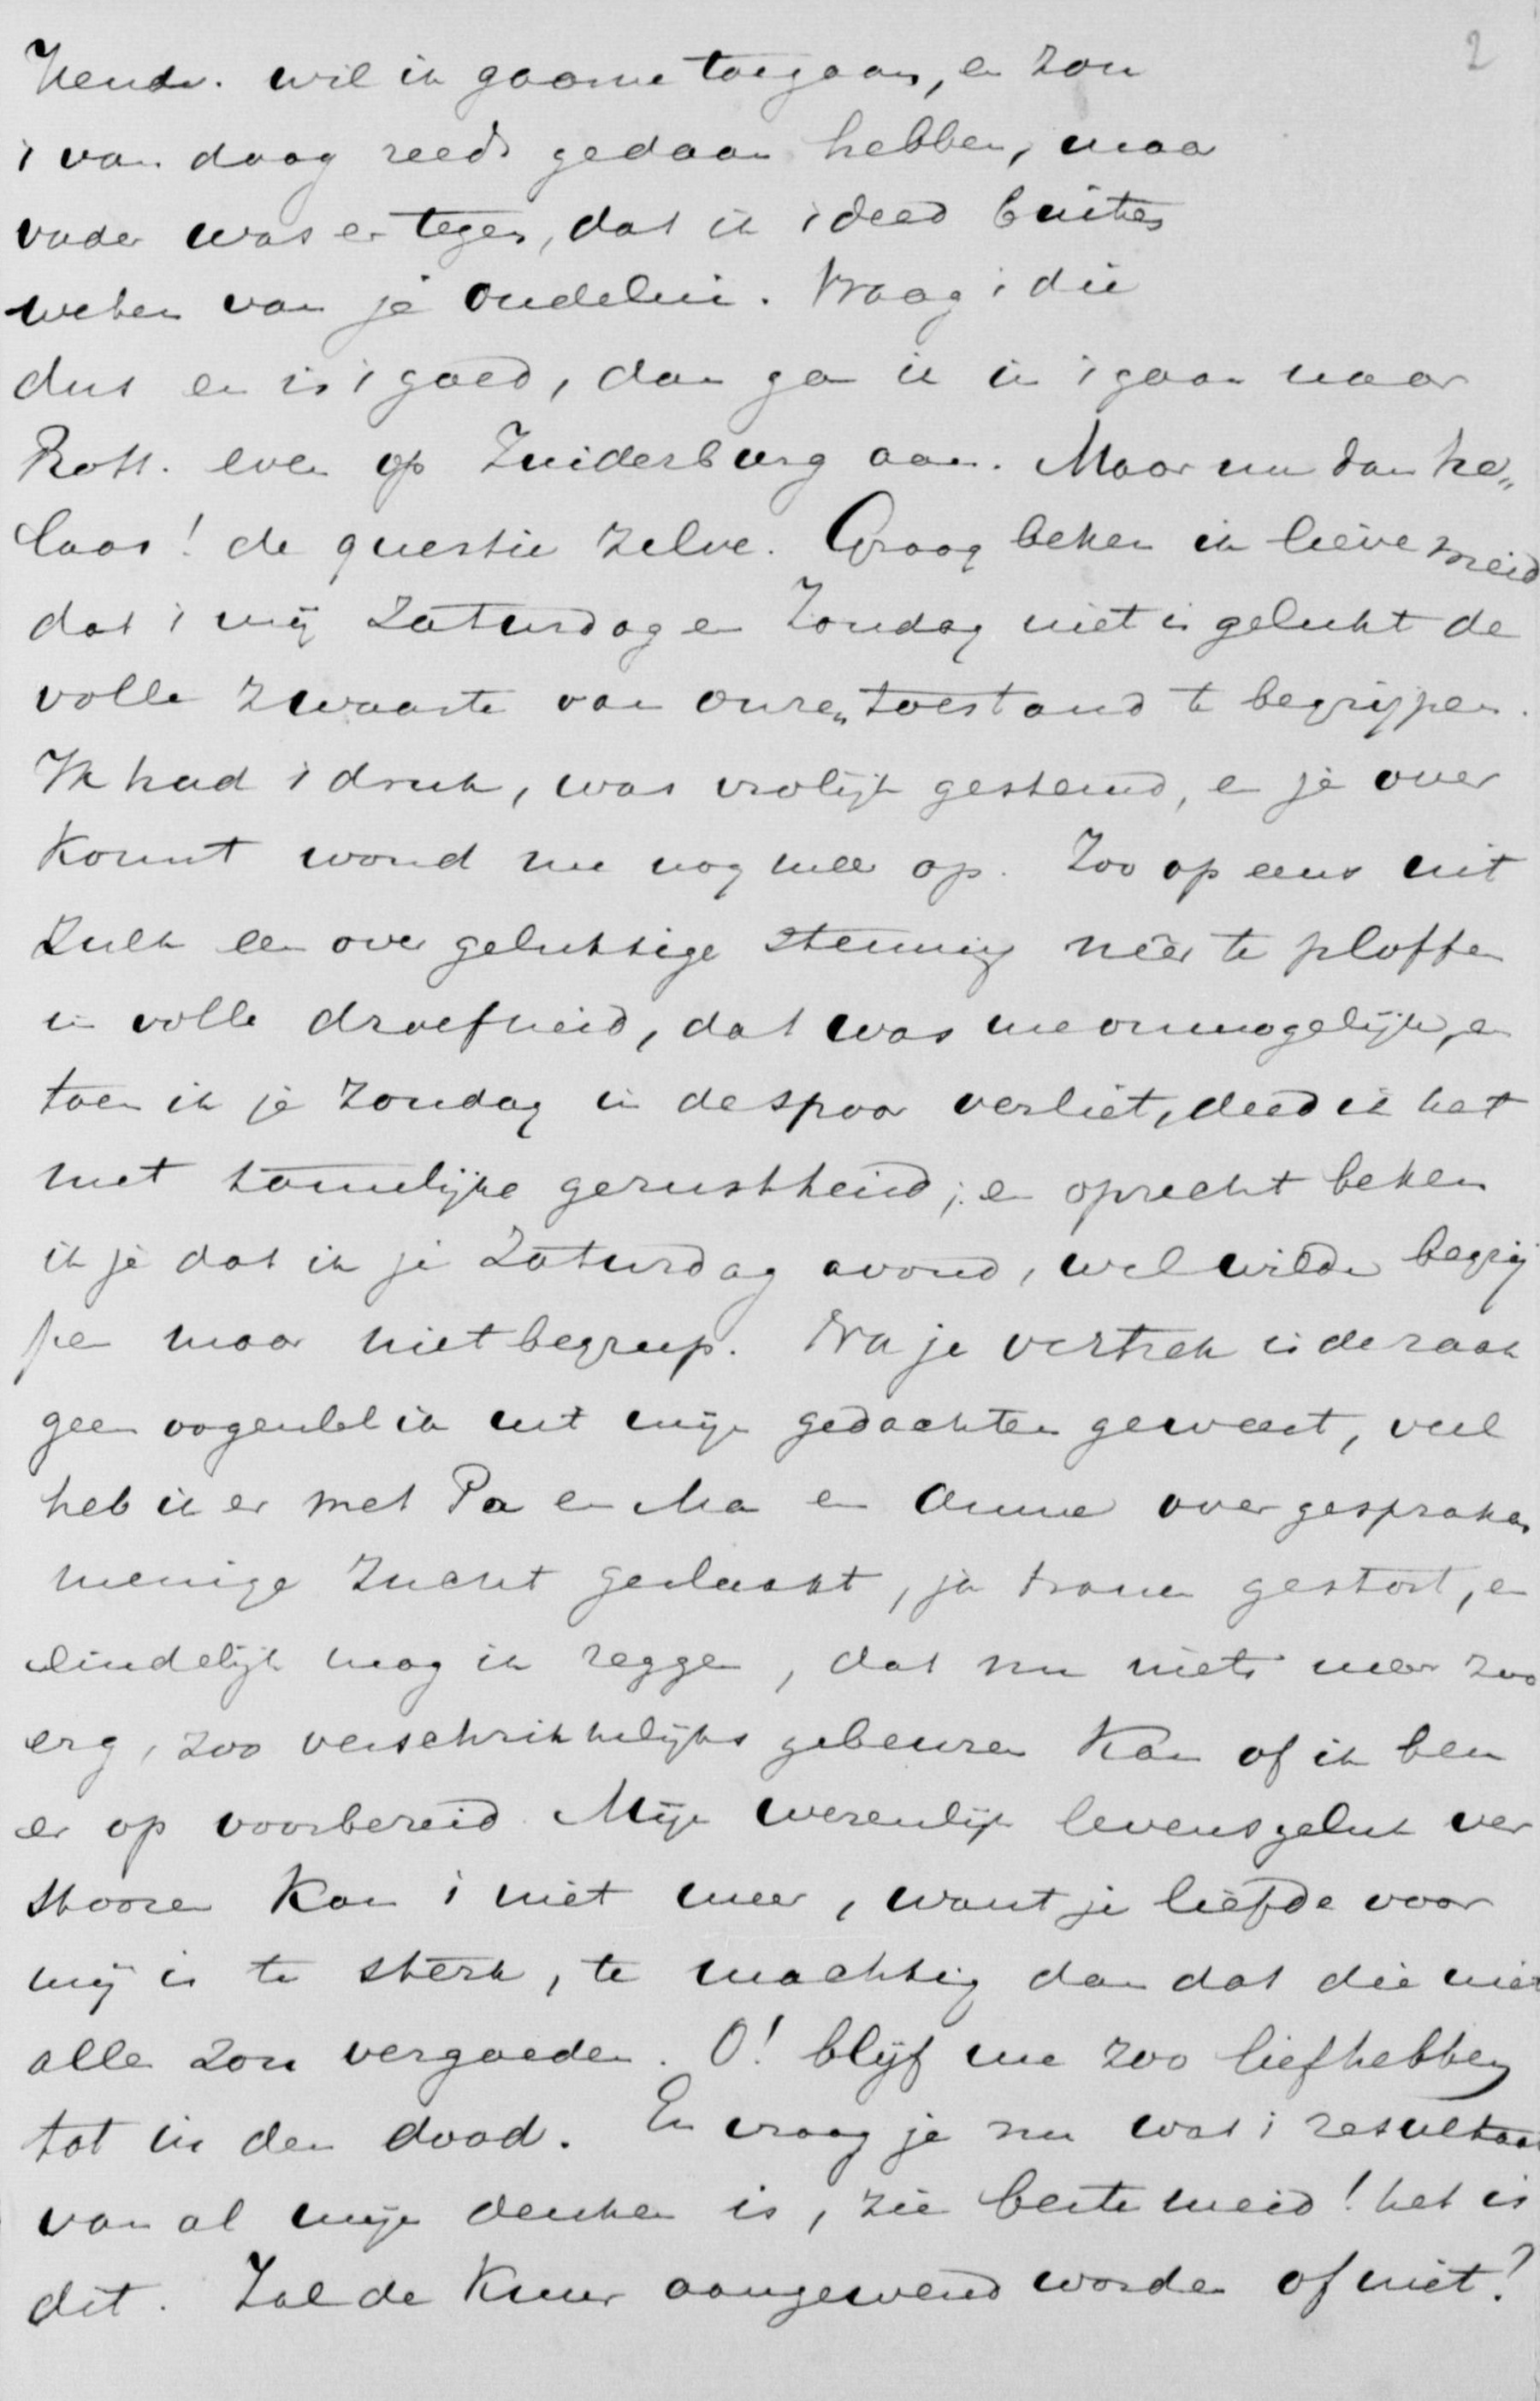 2
Hendr. wil ik gaarne toegaan, en zou
't van daag reeds gedaan hebben, maar
vader was er tegen, dat ik 't deed buiten
weten van je oudelui. Vraag 't die
dus en is 't goed, dan ga ik in 't gaan naar
Rott. even op Zuiderburg aan. Maar nu dan he„
laas! de questie zelve. Graag beken ik lieve meid
dat 't mij Zaturdag en Zondag niet is gelukt de
volle zwaarte van onzen toestand te begrijpen.
Ik had 't druk, was vrolijk gestemd, en je over
komst wond me nog meer op. Zoo op eens uit
zulk een over gelukkige stemming néér te ploffen
in volle droefheid, dat was me onmogelijk, en
toen ik je Zondag in de spoor verliet, deed ik het
met tamelijke gerustheid; en oprecht beken
ik je dat ik je Zaturdag avond, wel wilde begrij
pen maar niet begreep. Na je vertrek is de zaak
geen oogenblik uit mijn gedachten geweest, veel
heb ik er met Pa en Ma en Anna over gesproken
menige zucht geslaakt, ja tranen gestort, en
eindelijk mag ik zeggen, dat nu niets meer zoo
erg, zoo verschrikkelijks gebeuren kan of ik ben
er op voorbereid. Mijn wezenlijk levensgeluk ver
stooren kan 't niet meer, want je liefde voor
mij is te sterk, te machtig dan dat die niet
alles zou vergoeden. O! blijf me zoo liefhebben
tot in den dood. En vraag je nu wat 't resultaat
van al mijn denken is, zie beste meid! het is
dit. Zal de kuur aangewend worden of niet?